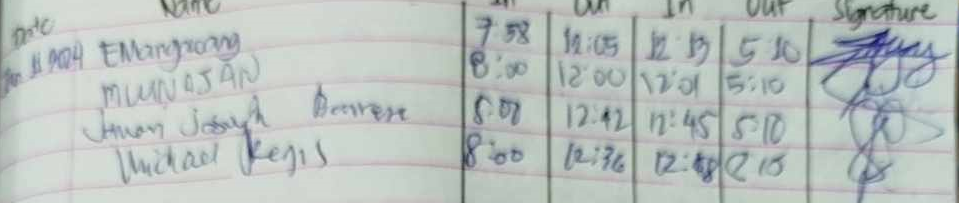 Date Name In Out In Out Signature
EMangroang 7:58 12:05 12:13 5:10
MUNOJAN 8:00 12:00 12:01 5:10
Juan Joseph 8:00 12:42 12:45 5:10
Michael Regis 8:00 12:36 12:48